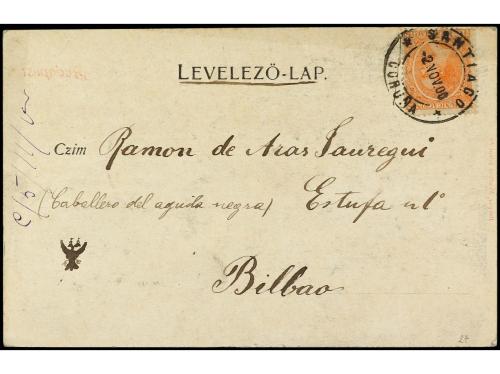 LEVELEZŐ-LAP.
* SANTIAGO *
2 NOV 00
CORUÑA
Czim Ramon de Aras Jauregui
(Caballero del aguila negra) Estufa nº
Bilbao